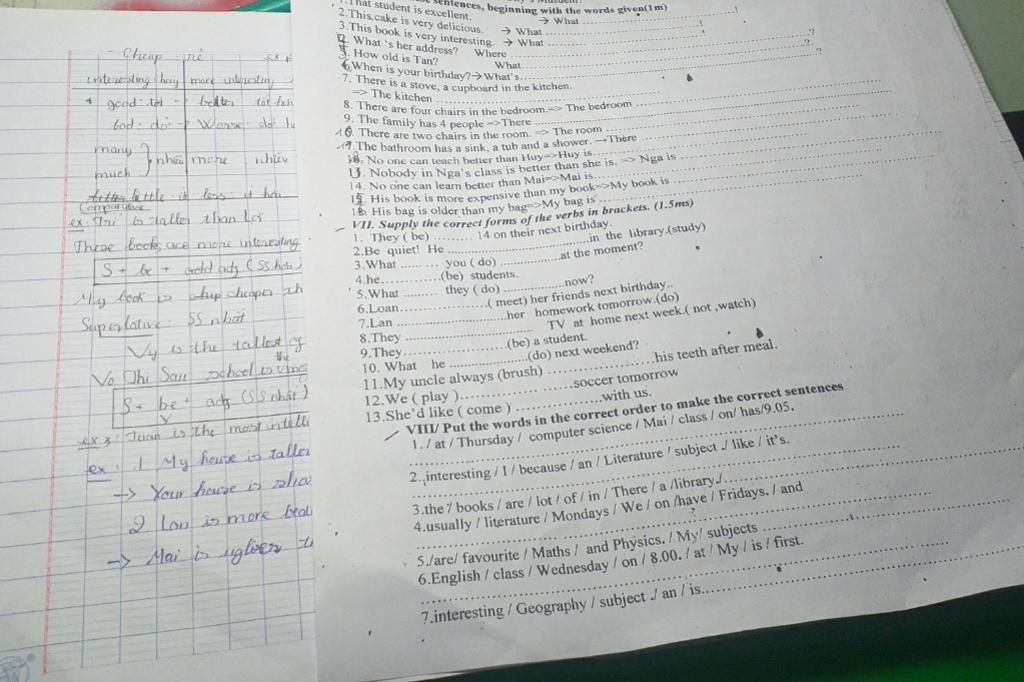 Cheap rẻ
interesting hay more interesting
* good: tốt → better tốt hơn
bad: dở → Worse: dở
many } nhiều more nhiều
much
little: ít less: ít hơn
Comparative
ex: Trí is taller than Lợi
These books are more interesting
S + be + adj (SS hơn)
My book is cheaper th
Superlative: SS nhất
Vy is the tallest of
Vo Thi Sau school is the
S + be + adj (SS nhất)
ex 3: Tuan is the most intelli
ex: 1 My house is taller
→ Your house is
2 Lan is more beau
→ Mai is uglier
sentences, beginning with the words given(1m)
1.That student is excellent. → What ..............!
2.This.cake is very delicious. → What ..............!
3.This book is very interesting. → What ..............!
4. What 's her address? Where ..............?
5. How old is Tan? What ..............?
6.When is your birthday?→What's..............?
7. There is a stove, a cupboard in the kitchen.
=> The kitchen ..............
8. There are four chairs in the bedroom.=> The bedroom ..............
9. The family has 4 people =>There ..............
10. There are two chairs in the room. => The room ..............
The bathroom has a sink, a tub and a shower. →There ..............
No one can teach better than Huy=>Huy is..............
13. Nobody in Nga's class is better than she is. => Nga is ..............
14. No one can learn better than Mai=>Mai is..............
15. His book is more expensive than my book=>My book is ..............
16. His bag is older than my bag=>My bag is ..............
VII. Supply the correct forms of the verbs in brackets. (1.5ms)
1. They ( be) ......... 14 on their next birthday.
2.Be quiet! He ..............in the library.(study)
3.What ........ you ( do) ..............at the moment?
4.he..............(be) students.
5.What ......... they ( do) ..............now?
6.Loan..............( meet) her friends next birthday..
7.Lan ..............her homework tomorrow.(do)
8.They .............. TV at home next week.( not ,watch)
9.They..............(be) a student.
10. What he ..............(do) next weekend?
11.My uncle always (brush) ..............his teeth after meal.
12.We ( play )..............soccer tomorrow
13.She'd like ( come ) ..............with us.
VIII/ Put the words in the correct order to make the correct sentences
1. / at / Thursday / computer science / Mai / class / on/ has/9.05.
2. interesting / I / because / an / Literature / subject ./ like / it's.
3.the / books / are / lot / of / in / There / a /library./..............
4.usually / literature / Mondays / We / on /have / Fridays. / and
5./are/ favourite / Maths / and Physics. / My/ subjects ..............
6.English / class / Wednesday / on / 8.00. / at / My / is / first.
7.interesting / Geography / subject ./ an / is..............